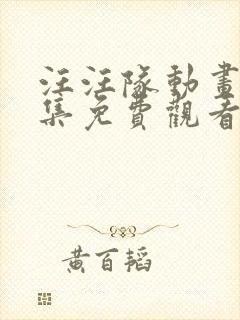 汪汪隊動畫
集免費觀看
黃百韜